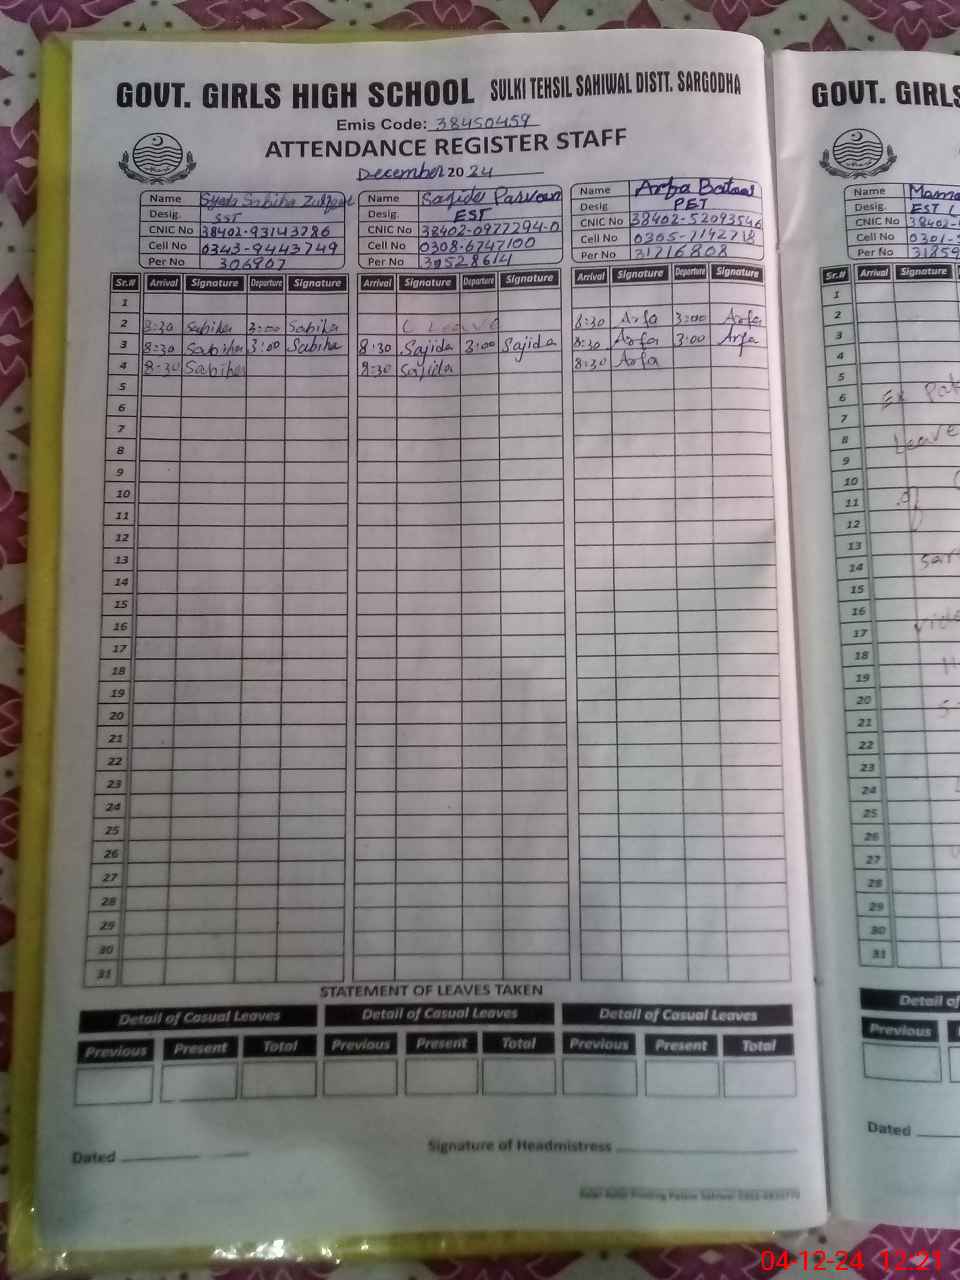 GOVT. GIRLS HIGH SCHOOL SULKI TEHSIL SAHIWAL DISTT. SARGODHA
Emis Code: 38450459
ATTENDANCE REGISTER STAFF
December 2024
Name Syeda Sabiha
Desig. SST
CNIC No 38402-93143786
Cell No 03443-9443749
Per No 306907
Name Sajida Parveen
Desig. EST
CNIC No 38402-0977294-0
Cell No 0308-6747100
Per No
Name Arfa Batool
Desig PET
CNIC No 38402-52093546
Cell No 0305-7142718
Per No 31716808
Sr.# Arrival Signature Departure Signature Arrival Signature Departure Signature Arrival Signature Departure Signature
1
2 8:30 Sabiha 3:00 Sabiha C Leave 8:30 Arfa 3:00 Arfa
3 8:30 Sabiha 3:00 Sabiha 8:30 Sajida 3:00 Sajida 8:30 Arfa 3:00 Arfa
4 8:30 Sabiha 8:30 Sajida 8:30 Arfa
5
6
7
8
9
10
11
12
13
14
15
16
17
18
19
20
21
22
23
24
25
26
27
28
29
30
31
STATEMENT OF LEAVES TAKEN
Detail of Casual Leaves Detail of Casual Leaves Detail of Casual Leaves
Previous Present Total Previous Present Total Previous Present Total
Dated Signature of Headmistress
GOVT. GIRLS
Name
Desig. EST
CNIC No 38402-
Cell No 0301-
Per No 31859
Sr.# Arrival Signature
1
2
3
4
5
6 Ex Pak
7
8 Leave
9
10
11 of
12
13
14
15
16
17
18
19
20
21
22
23
24
25
26
27
28
29
30
31
Detail of
Previous
Dated
04-12-24 12:21